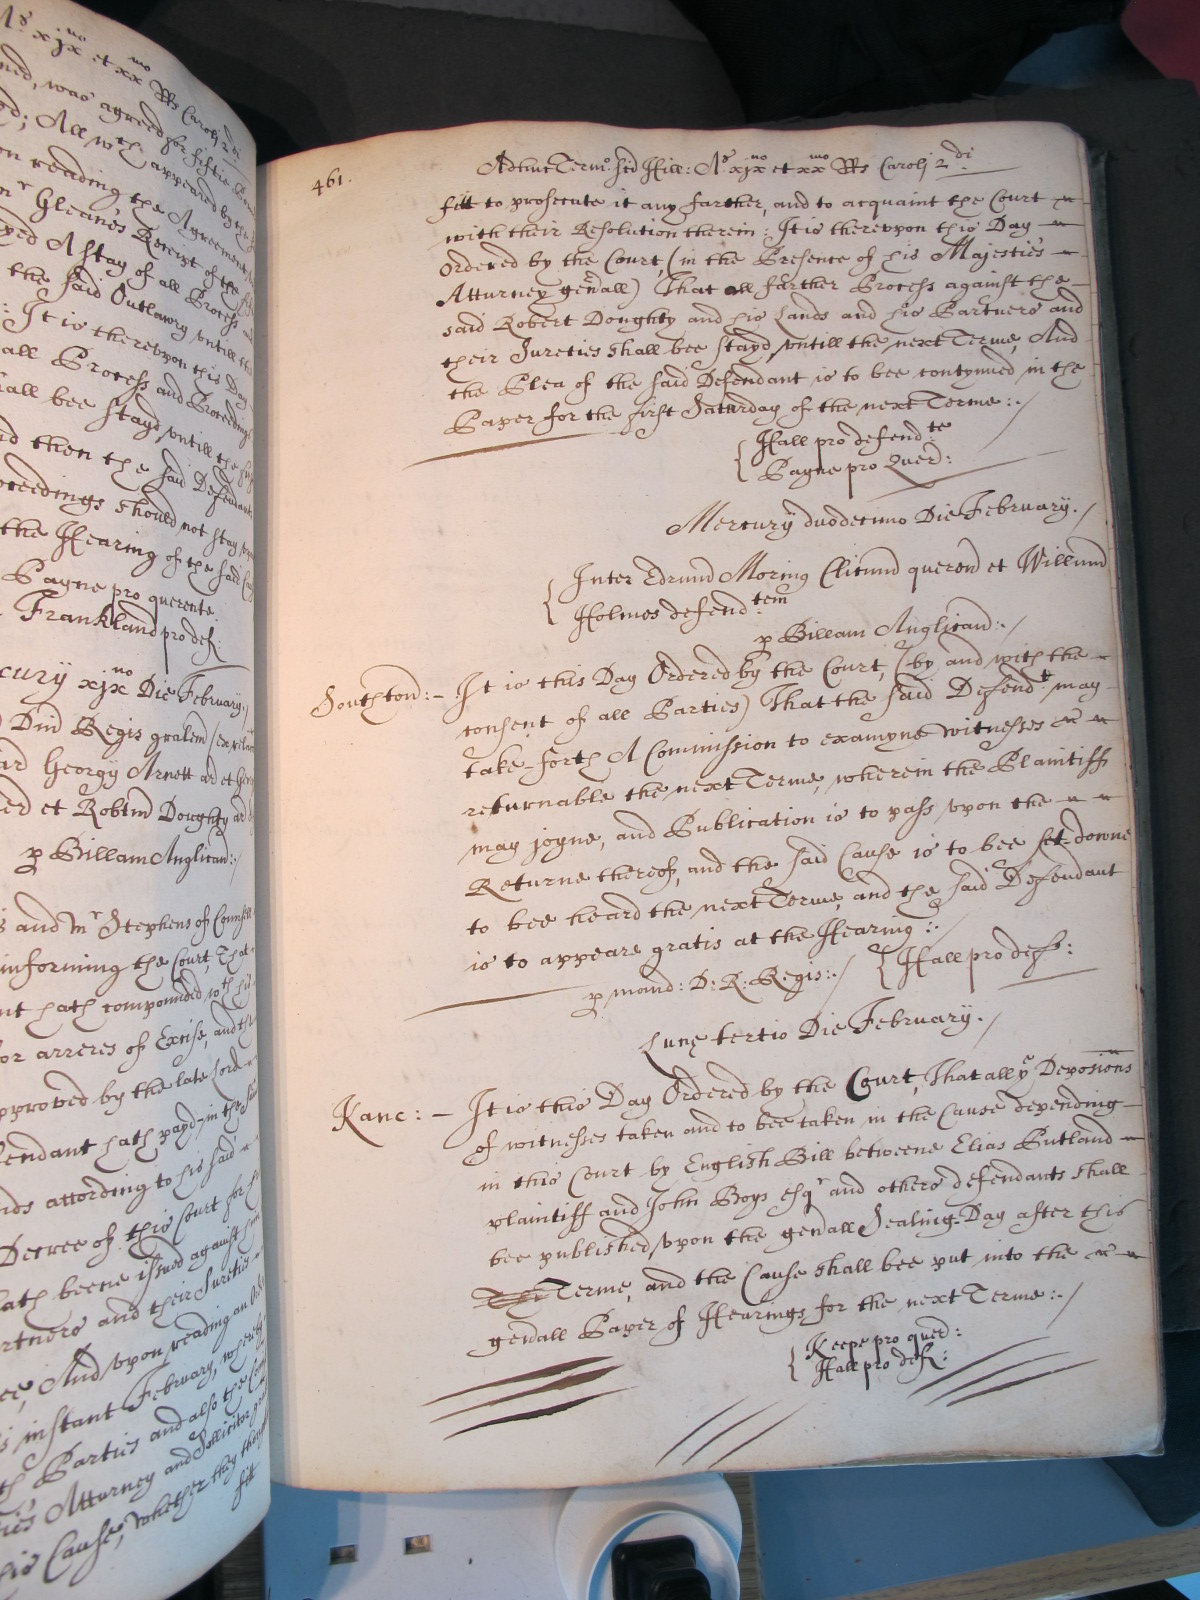 rs xjxno et xxmo RRs Caroli 2di
was agreed for fiftie
All wch appeared by the
on reading the Agreement
Gleanes Receipt of the
A stay of all Process and
the said Outlawry untill the
: It is thereupon this Day
all Process and Proceedings
shall bee stayd untill the
and then the said Defendant
proceedings should not stay
the Hearing of the said
Payne pro querente.
Frankland pro def:
xjxno Die February./
Dm Regis gralem
Georgy Arnett ar et
et Robtm Doughty ar
p Billam Anglican:/
and Mr Stephens of Counsell
informing the Court, That
hath compounded wth his
for arreres of Excise, and the
approved by the late Lord
Defendant hath payd in the said
according to his said
Decree of this Court for
hath beene issued against
Partners and their Sureties
And upon reading an
instant February, where
Parties and also the
Attorney and Sollicitor
Cause, whether they
fitt
461.
Adhuc Termo Scd Hill: Ars xjxno et xxmo RRs Caroli 2di:
fitt to prosecute it any farther, and to acquaint the Court
with their Resolution therein: It is thereupon this Day
Ordered by the Court, (in the Presence of his Majesties
Atturney genrall) That all farther Process against the
said Robert Doughty and his Lands and his Partners and
their Sureties shall bee stayd, untill the next Terme, And
the Plea of the said Defendant is to bee contynued in the
Paper for the first Saturday of the next Terme:./
Hall pro defendte
Payne pro Quer:
Mercury duodecimo Die February./
Inter Edrund Moring Clicum queren et Willum
Holmes defendtem
p Billam Anglican:./
Southton:- It is this Day Ordered by the Court, (by and with the
consent of all Parties) That the said Defendt may
take forth A Commission to examyne witnesses
returnable the next Terme, wherein the Plaintiff
may joyne, and Publication is to pass upon the
Returne thereof, and the said Cause is to bee set downe
to bee heard the next Terme, and the said Defendant
is to appeare gratis at the Hearing:./
p mand: D: R: Regis:./ Hall pro def:
Lune tertio Die February./
Kanc:- It is this Day Ordered by the Court, That all ye Deposions
of witnesses taken and to bee taken in the Cause depending
in this Court by English Bill betweene Elias Butland
plaintiff and John Boys esqr and others defendants shall
bee published, upon the genrall Sealing-Day after this
Terme, and the Cause shall bee put into the
genrall Paper of Hearings for the next Terme:./
Keepe pro quer:
Hall pro def: